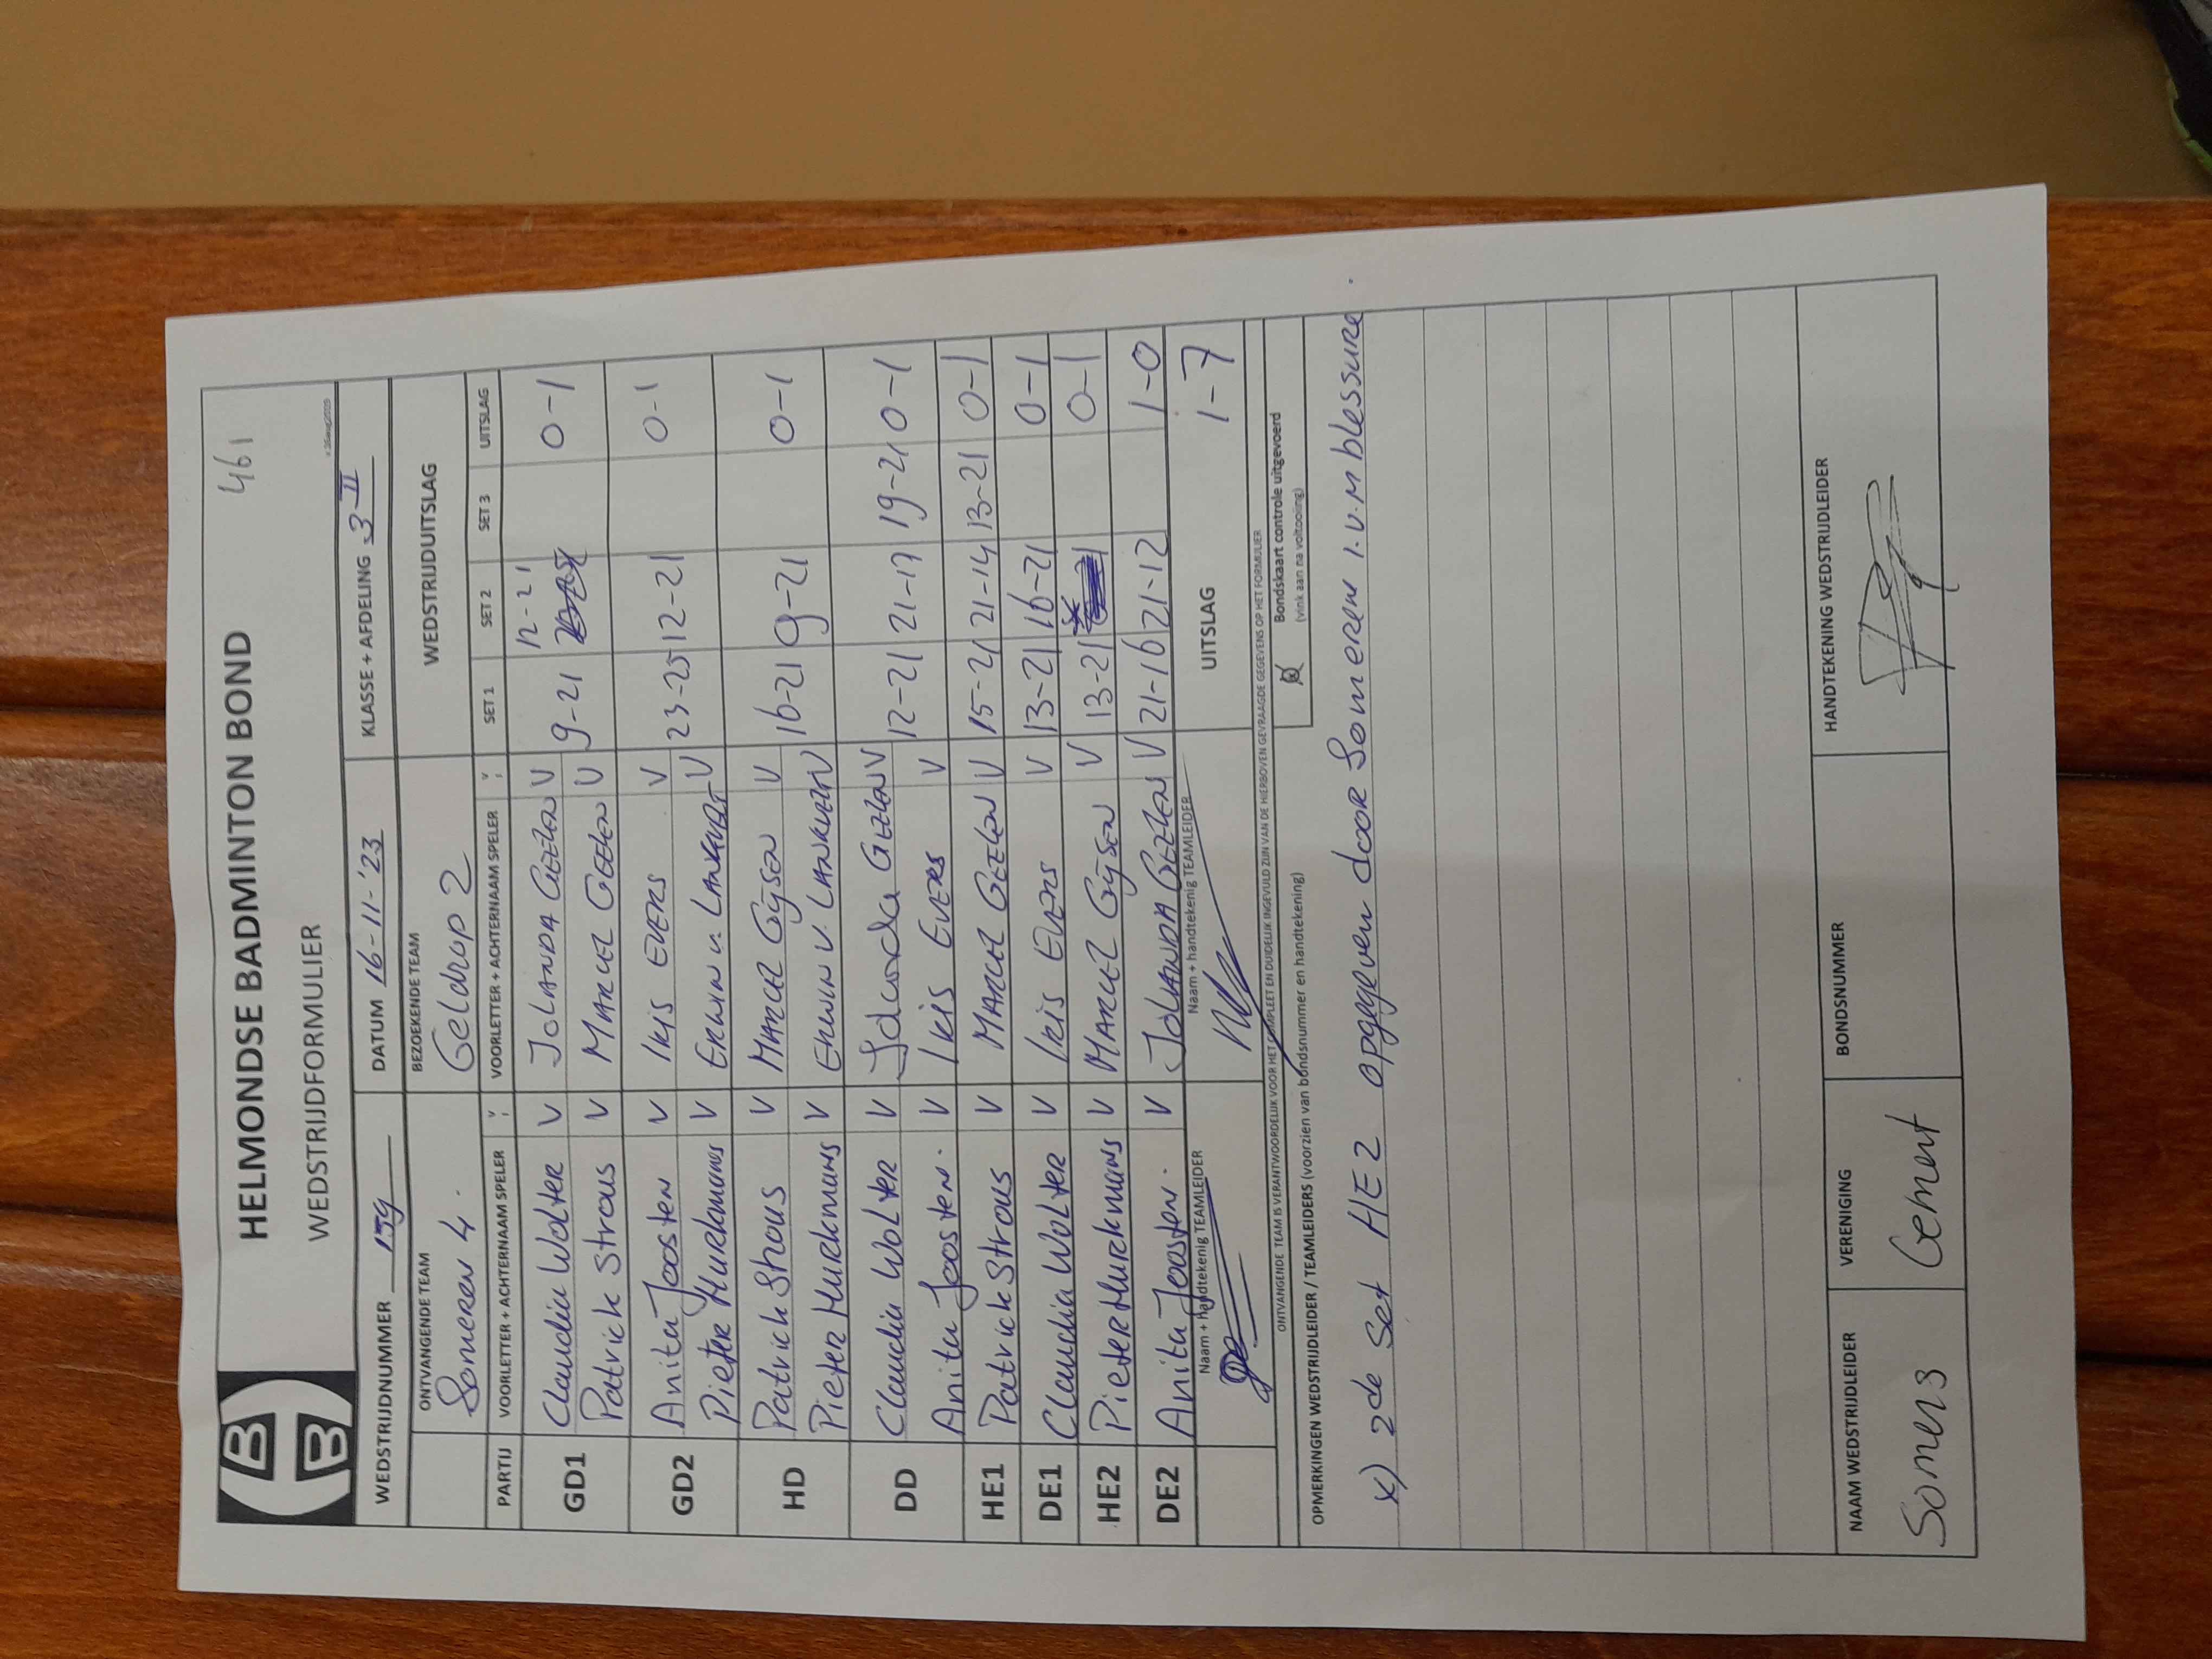 HELMONDSE BADMINTON BOND
461
WEDSTRIJDFORMULIER
WEDSTRIJDNUMMER 159 DATUM 16-11-'23 KLASSE + AFDELING 3-II
ONTVANGENDE TEAM BEZOEKENDE TEAM WEDSTRIJDUITSLAG
Someren 4. Geldrop 2
PARTIJ VOORLETTER + ACHTERNAAM SPELER V VOORLETTER + ACHTERNAAM SPELER V SET 1 SET 2 SET 3 UITSLAG
GD1 Claudia Wolter V JOLANDA GEELEN V 9-21 12-21 0-1
Patrick Strous V MARCEL GEELEN V
GD2 Anita Joosten V IRIS EVERS V 23-25 12-21 0-1
Pieter Hurkmans V ERWIN v. LANKVELT V
HD Patrick Strous V MARCEL Gijsen V 16-21 9-21 0-1
Pieter Hurkmans V ERWIN V. LANKVELT V
DD Claudia Wolter V Jolanda GEELEN V 12-21 21-17 19-21 0-1
Anita Joosten. V Iris EVERS V
HE1 Patrick Strous V MARCEL GEELEN V 15-21 21-14 13-21 0-1
DE1 Claudia Wolter V Iris EVERS V 13-21 16-21 0-1
HE2 Pieter Hurkmans V MARCEL Gijsen V 13-21 x 0-1
DE2 Anita Joosten. V JOLANDA GEELEN V 21-16 21-12 1-0
Naam + handtekenig TEAMLEIDER Naam + handtekenig TEAMLEIDER UITSLAG 1-7
ONTVANGENDE TEAM IS VERANTWOORDELIJK VOOR HET COMPLEET EN DUIDELIJK INGEVULD ZIJN VAN DE HIERBOVEN GEVRAAGDE GEGEVENS OP HET FORMULIER
OPMERKINGEN WEDSTRIJDLEIDER / TEAMLEIDERS (voorzien van bondsnummer en handtekening)
Bondskaart controle uitgevoerd
(vink aan na voltooiing)
x) 2de Set HE2 opgegeven door Someren i.v.m blessure.
NAAM WEDSTRIJDLEIDER VERENIGING BONDSNUMMER HANDTEKENING WEDSTRIJDLEIDER
Someren 3 Gement